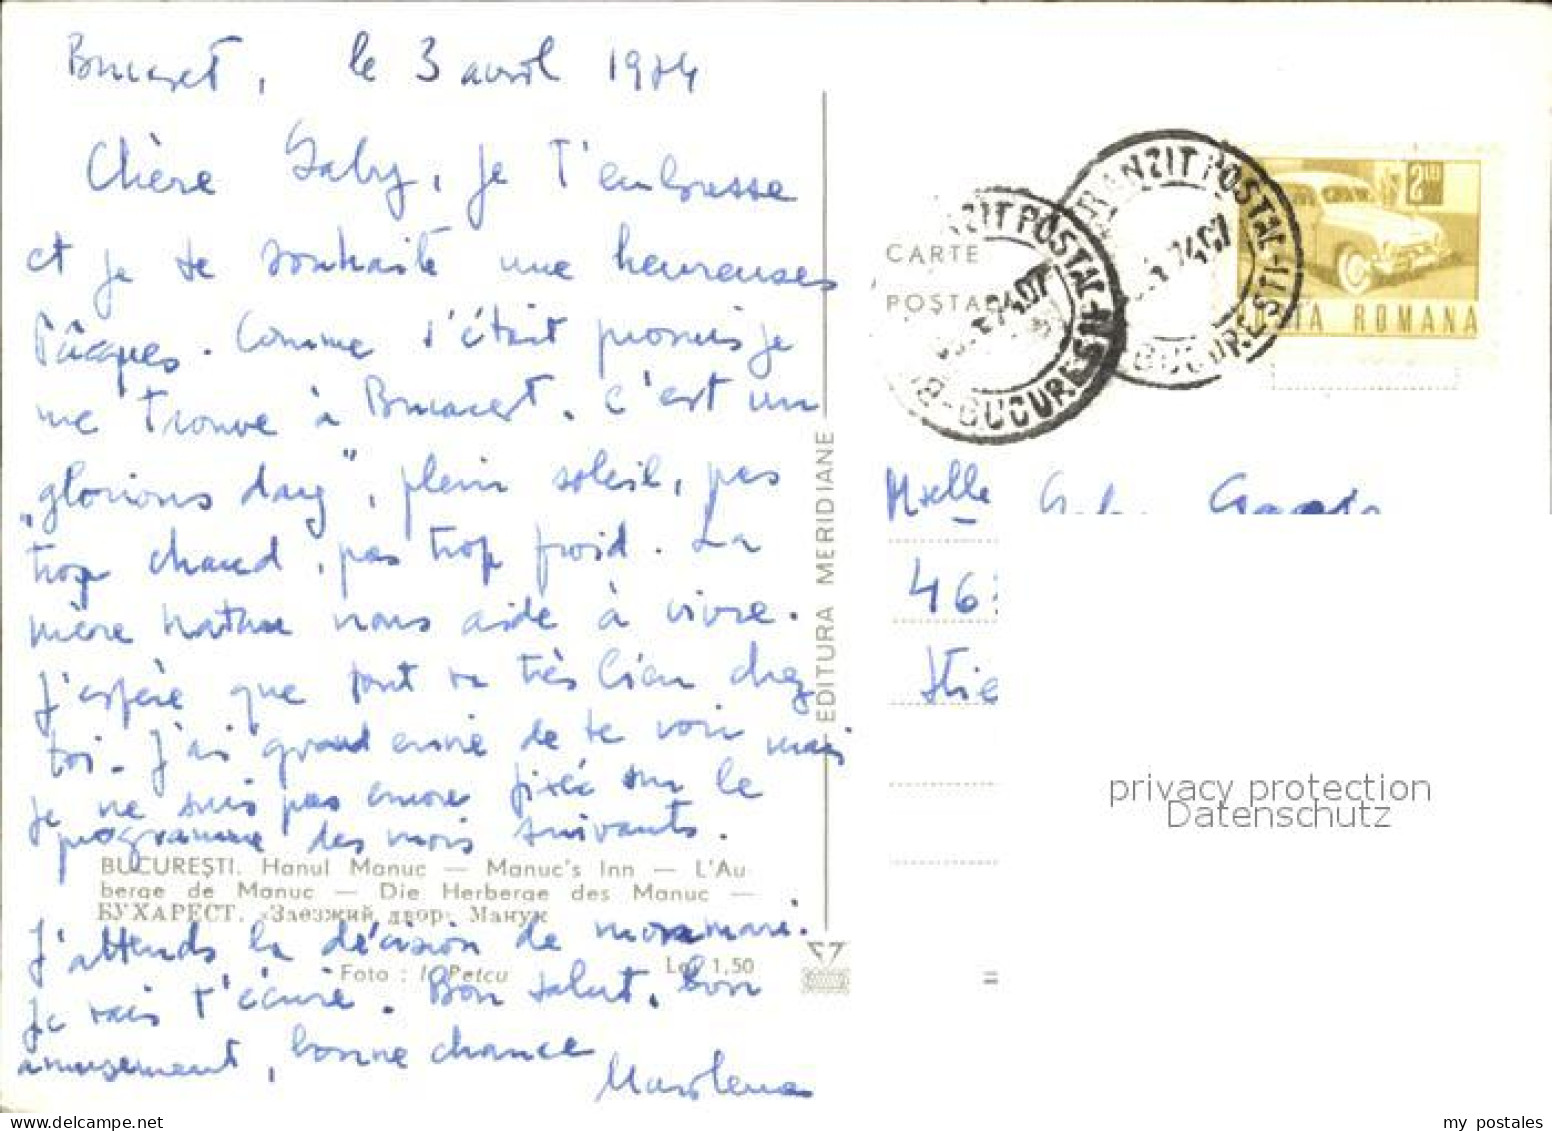 Bucarest, le 3 avril 1974
Chère Gaby, je t'embrasse
et je te souhaite une heureuses
Pâcques. Comme c'était promis je
me trouve à Bucarest. C'est un
„glorious day", plein soleil, pas
trop chaud, pas trop froid. La
mère nature nous aide à vivre.
J'espère que tout va très bien chez
toi. J'ai grand envie de te voir mais
je ne suis pas encore fixée sur le
programme des mois suivants.
BUCUREȘTI. Hanul Manuc — Manuc's Inn — L'Au
berge de Manuc — Die Herberge des Manuc —
БУХАРЕСТ. «Заезжий двор» Манук
J'attends la décision de mon mari.
Foto : I. Petcu Lei 1,50
Je vais t'écrire. Bon salut, bon
amusement, bonne chance
EDITURA MERIDIANE
CARTE
POȘTALĂ
TRANZIT POSTAL
BUCUREȘTI
74.07
TRANZIT POSTAL
BUCUREȘTI
74.07
POSTA ROMANA
Mselle
46
privacy protection
Datenschutz
my postales